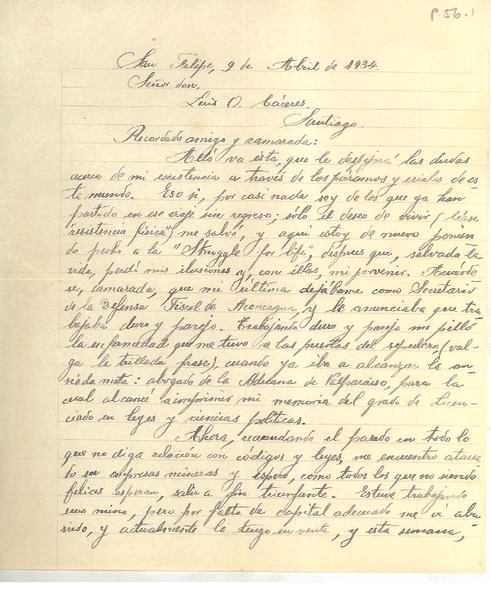 P.56.1
San Felipe, 9 de Abril de 1934.
Señor don,
Luis O. Cáceres.
Santiago.
Recordado amigo y camarada:
Allá va ésta, que le despeja las dudas
acerca de mi existencia a través de los páramos y eriales de es
te mundo. Eso sí, por casi nada soy de los que ya han
partido en ese viaje sin regreso; sólo el deseo de vivir (léase
"resistencia física") me salvó, y aquí estoy de nuevo ponien
do pecho a la "Struggle for life", después que, salvada la
vida, perdí mis ilusiones y, con ellas, mi porvenir. Acuérde
se, camarada, que mi última dejábame como Secretario
de la Defensa Fiscal de Aconcagua, y le anunciaba que tra
bajaba duro y parejo. Trabajando duro y parejo me pilló
la enfermedad que me tuvo a las puertas del sepulcro (val
ga la trillada frase), cuando ya iba a alcanzar la an
siada meta: abogado de la Aduana de Valparaíso, para la
cual alcancé a imprimir mi memoria del grado de Licen
ciado en leyes y ciencias políticas.
Ahora, recordando el pasado en todo lo
que no diga relación con códigos y leyes, me encuentro ataca
do en empresas mineras y espero, como todos los que no siendo
felices esperan, salir a fin triunfante. Estuve trabajando
una mina, pero por falta de capital adecuado me vi abu
rrido, y actualmente la tengo en venta, y esta semana,